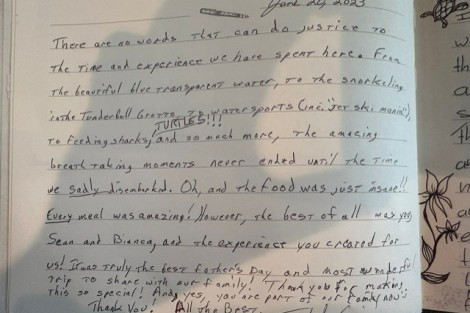 June 20, 2023
There are no words that can do justice to
the time and experience we have spent here. From
the beautiful blue transparent water, to the snorkeling
in the Tunderball Grotto, to watersports (inc. "Jet ski mania"),
TURTLES!!!
to feeding sharks, and so much more, the amazing
breath taking moments never ended until the time
we sadly disembarked. Oh, and the food was just insane!!
Every meal was amazing! However, the best of all was you,
Sean and Bianca, and the experience you created for
us! It was truly the best Father's Day and most wonderful
trip to share with our family! Thank you for making
this so special! And yes, you are part of our family now :)
Thank You! All the Best,